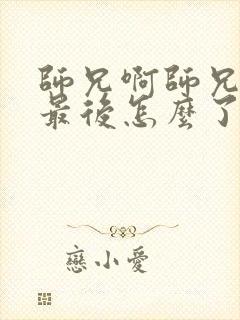 師兄啊師兄
最後怎麼了
戀小愛